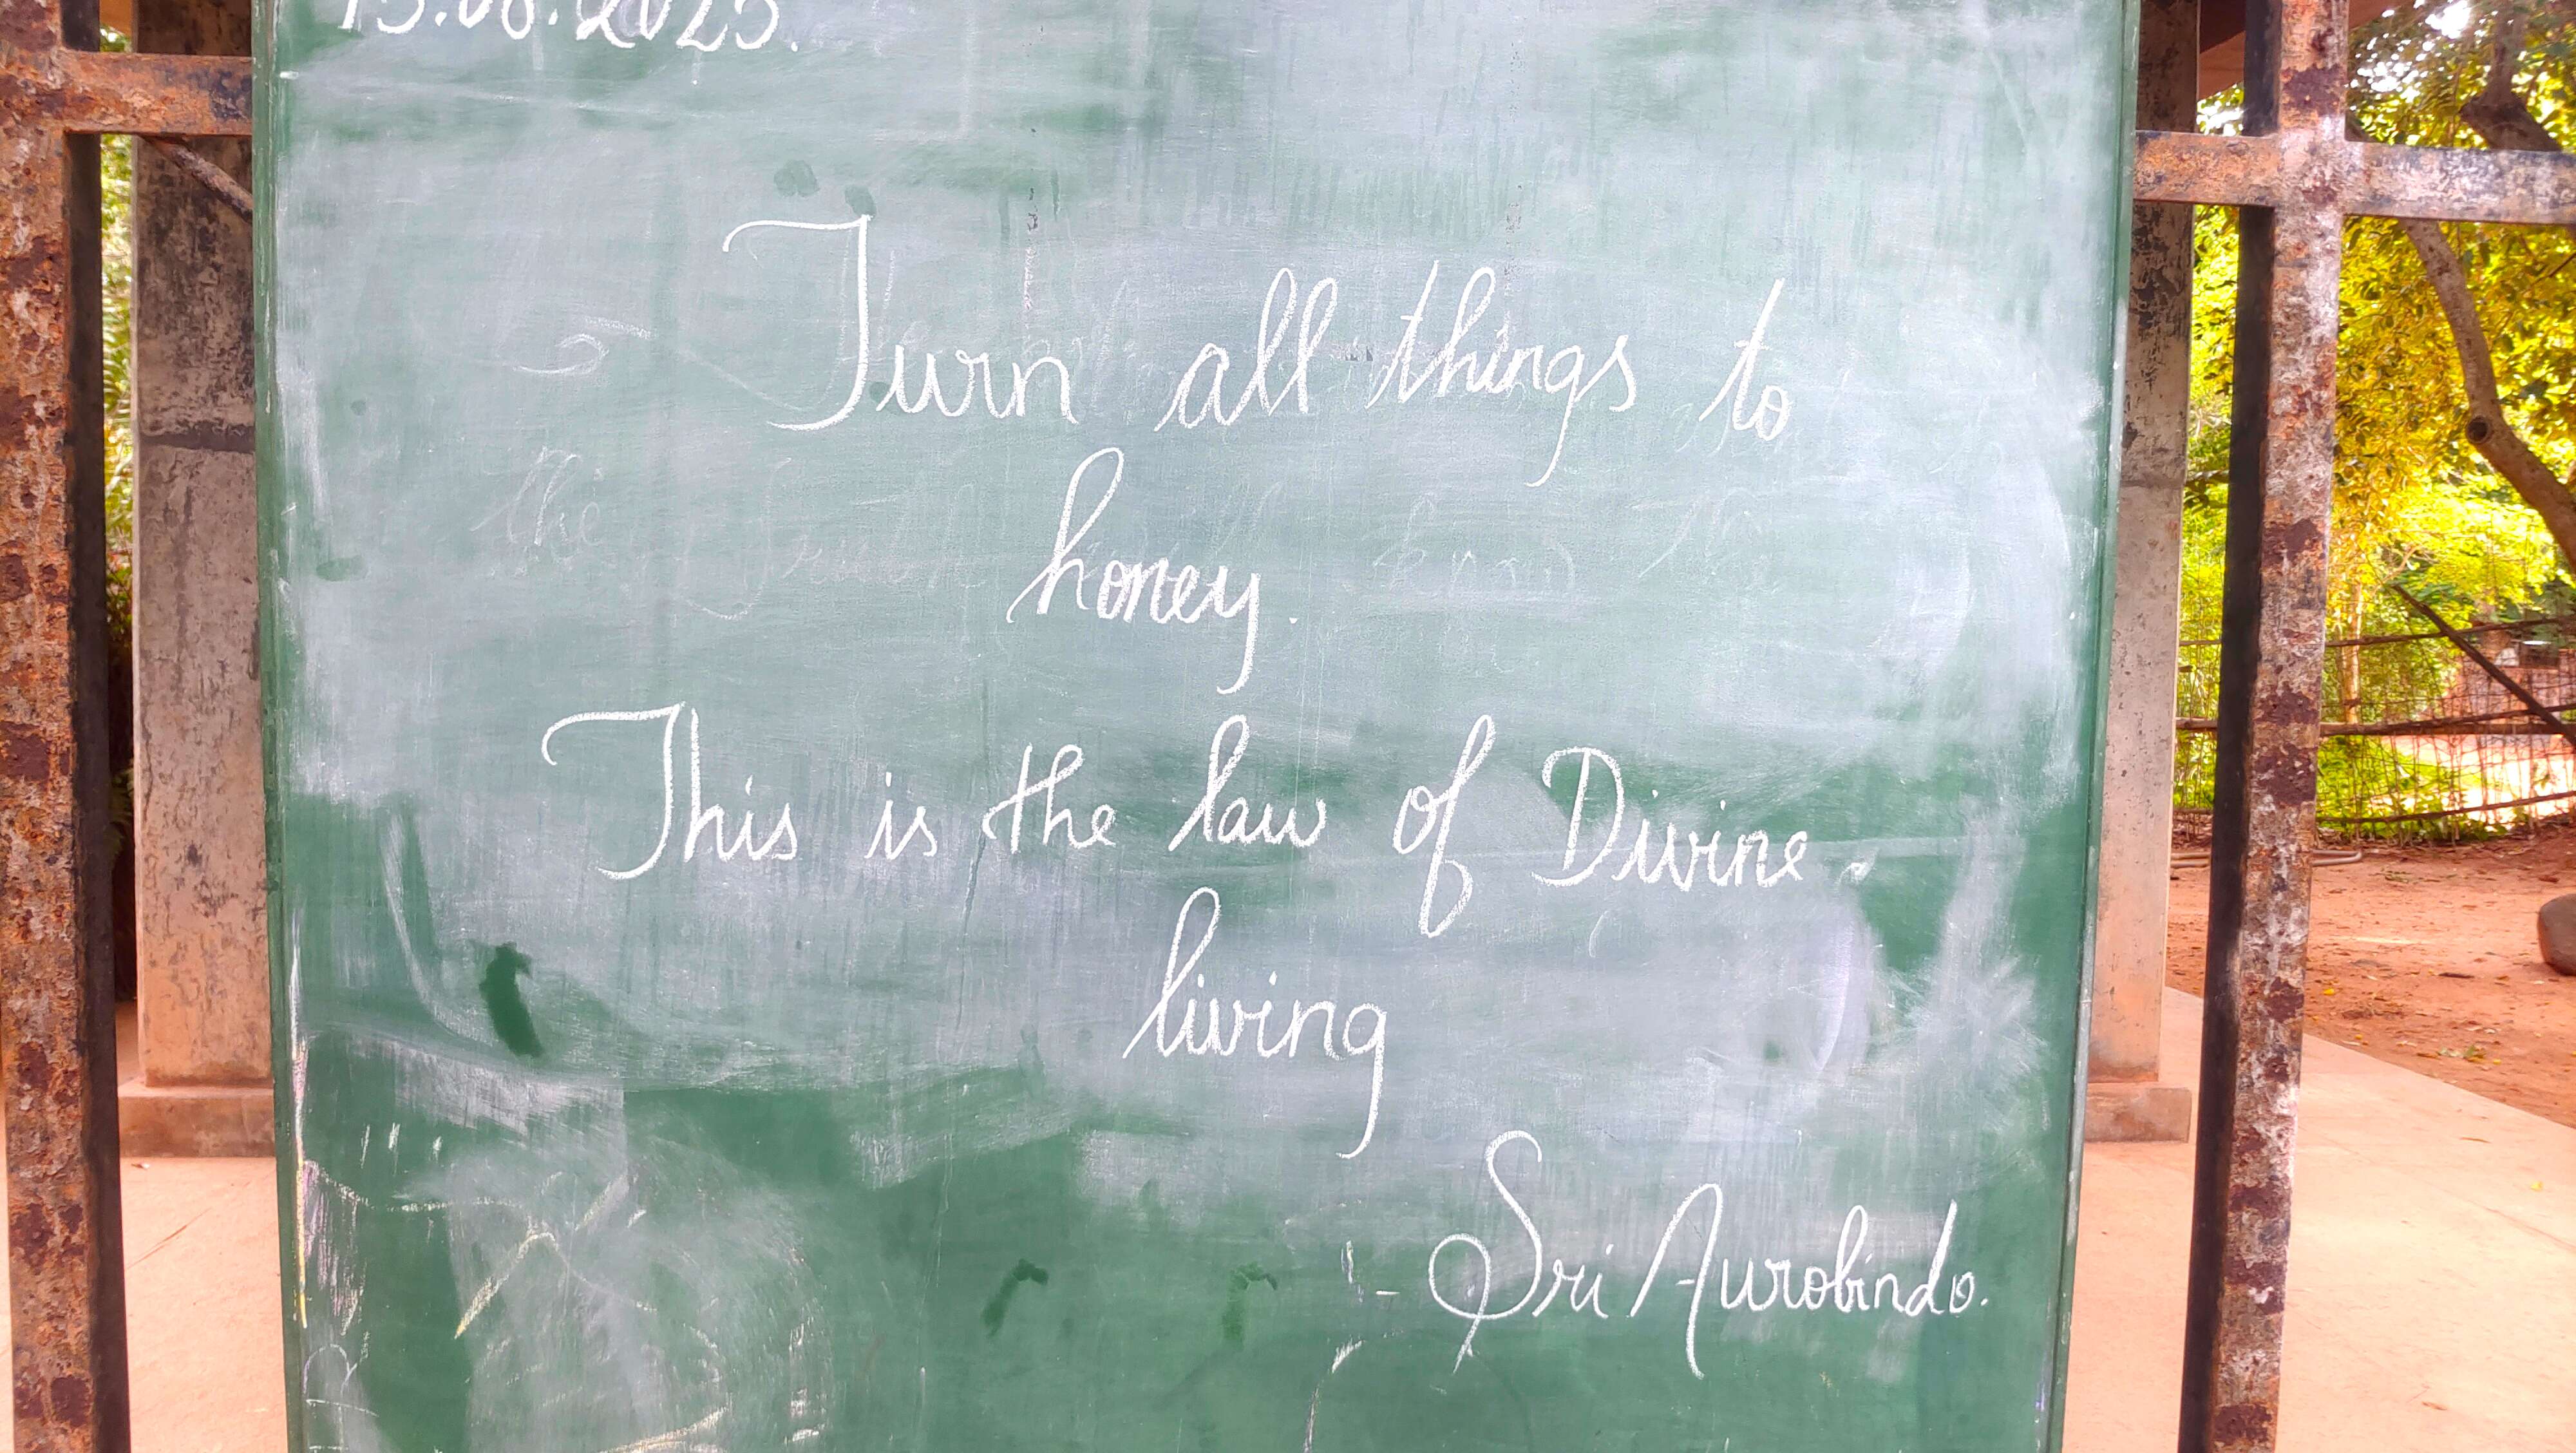 15.08.2025.
Turn all things to
honey.
This is the law of Divine
living
- Sri Aurobindo.